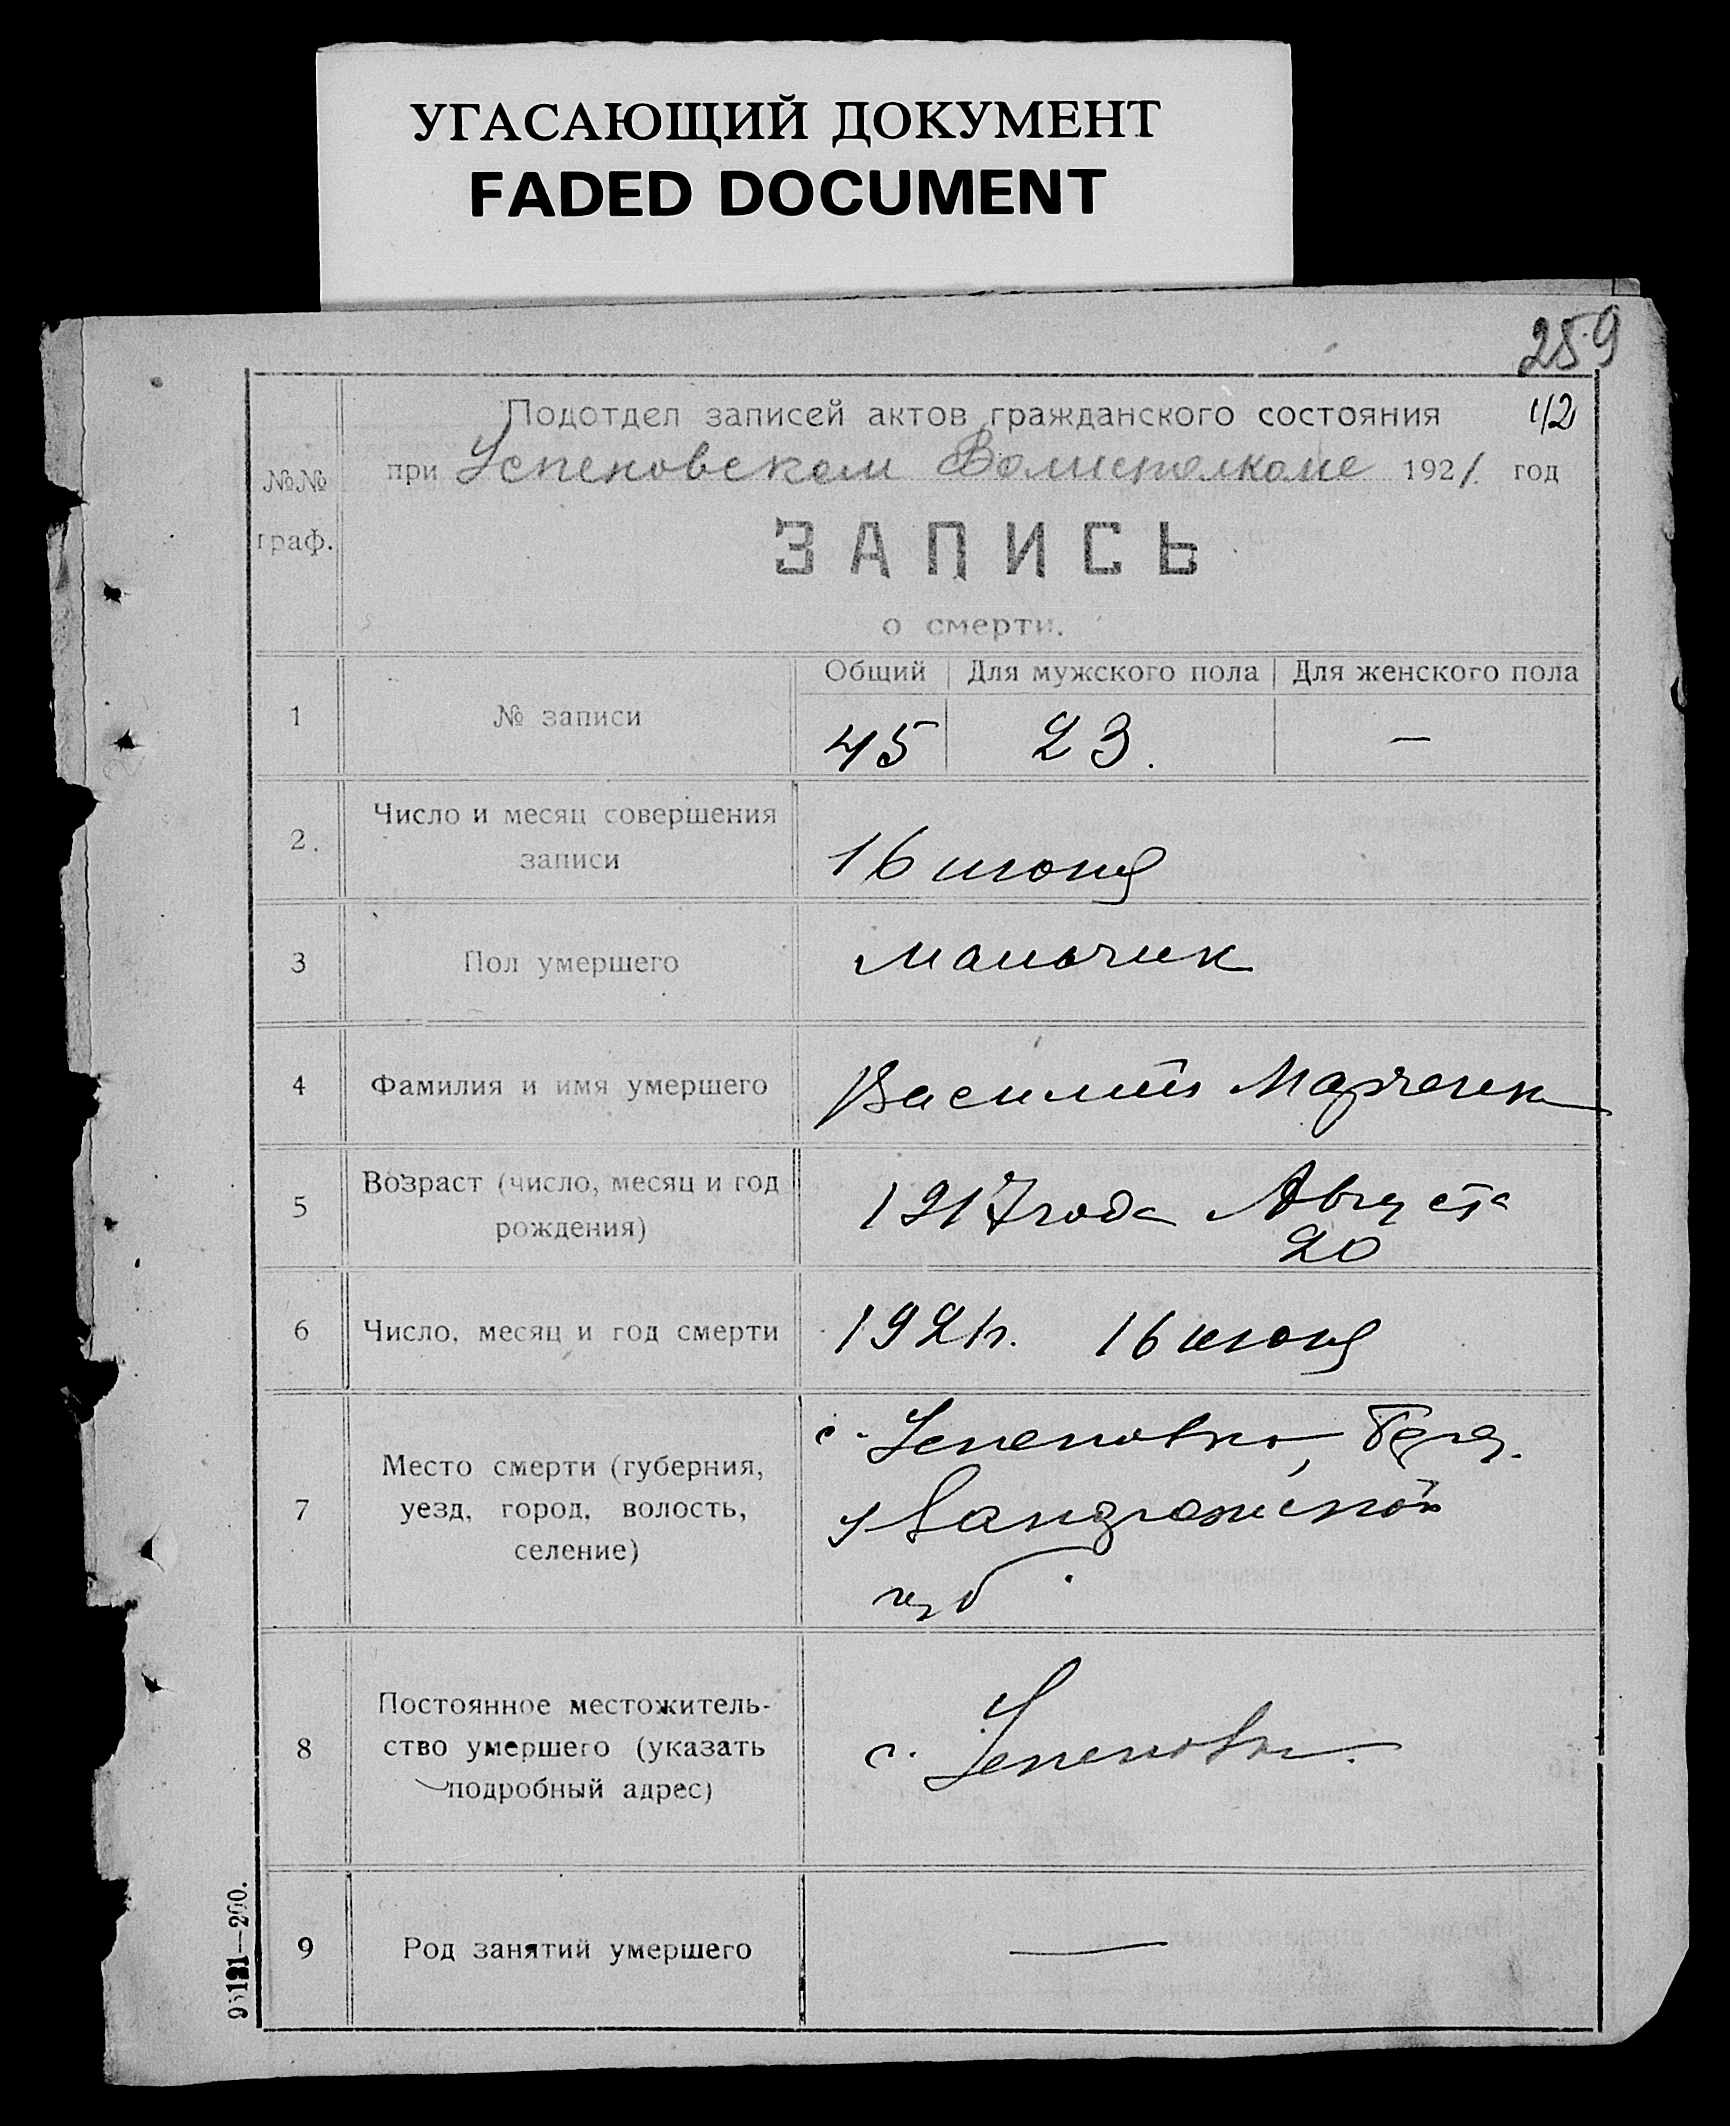 УГАСАЮЩИЙ ДОКУМЕНТ
FADED DOCUMENT
259
42
Подотдел записей актов гражданского состояния
при Успеновском Волисполкоме 1921 год
№№ граф.
ЗАПИСЬ
о смерти.
Общий Для мужского пола Для женского пола
1 № записи 45 23. —
2. Число и месяц совершения
записи
16 июня
3 Пол умершего мальчик
4 Фамилия и имя умершего Василий Марченко
5 Возраст (число, месяц и год
рождения)
1917 года Августа
20
6 Число, месяц и год смерти 1921 г. 16 июня
7 Место смерти (губерния,
уезд, город, волость,
селение)
с. Успеновка,
губ.
8 Постоянное местожитель-
ство умершего (указать
подробный адрес)
с. Успеновка.
9 Род занятий умершего —